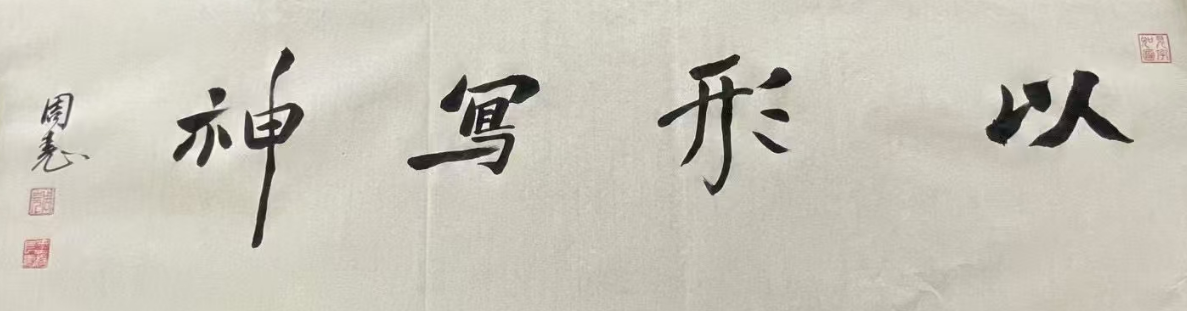 以形寫神
周憲